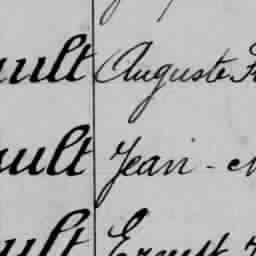 ault Auguste F
ault Jean - 
ault Ernest